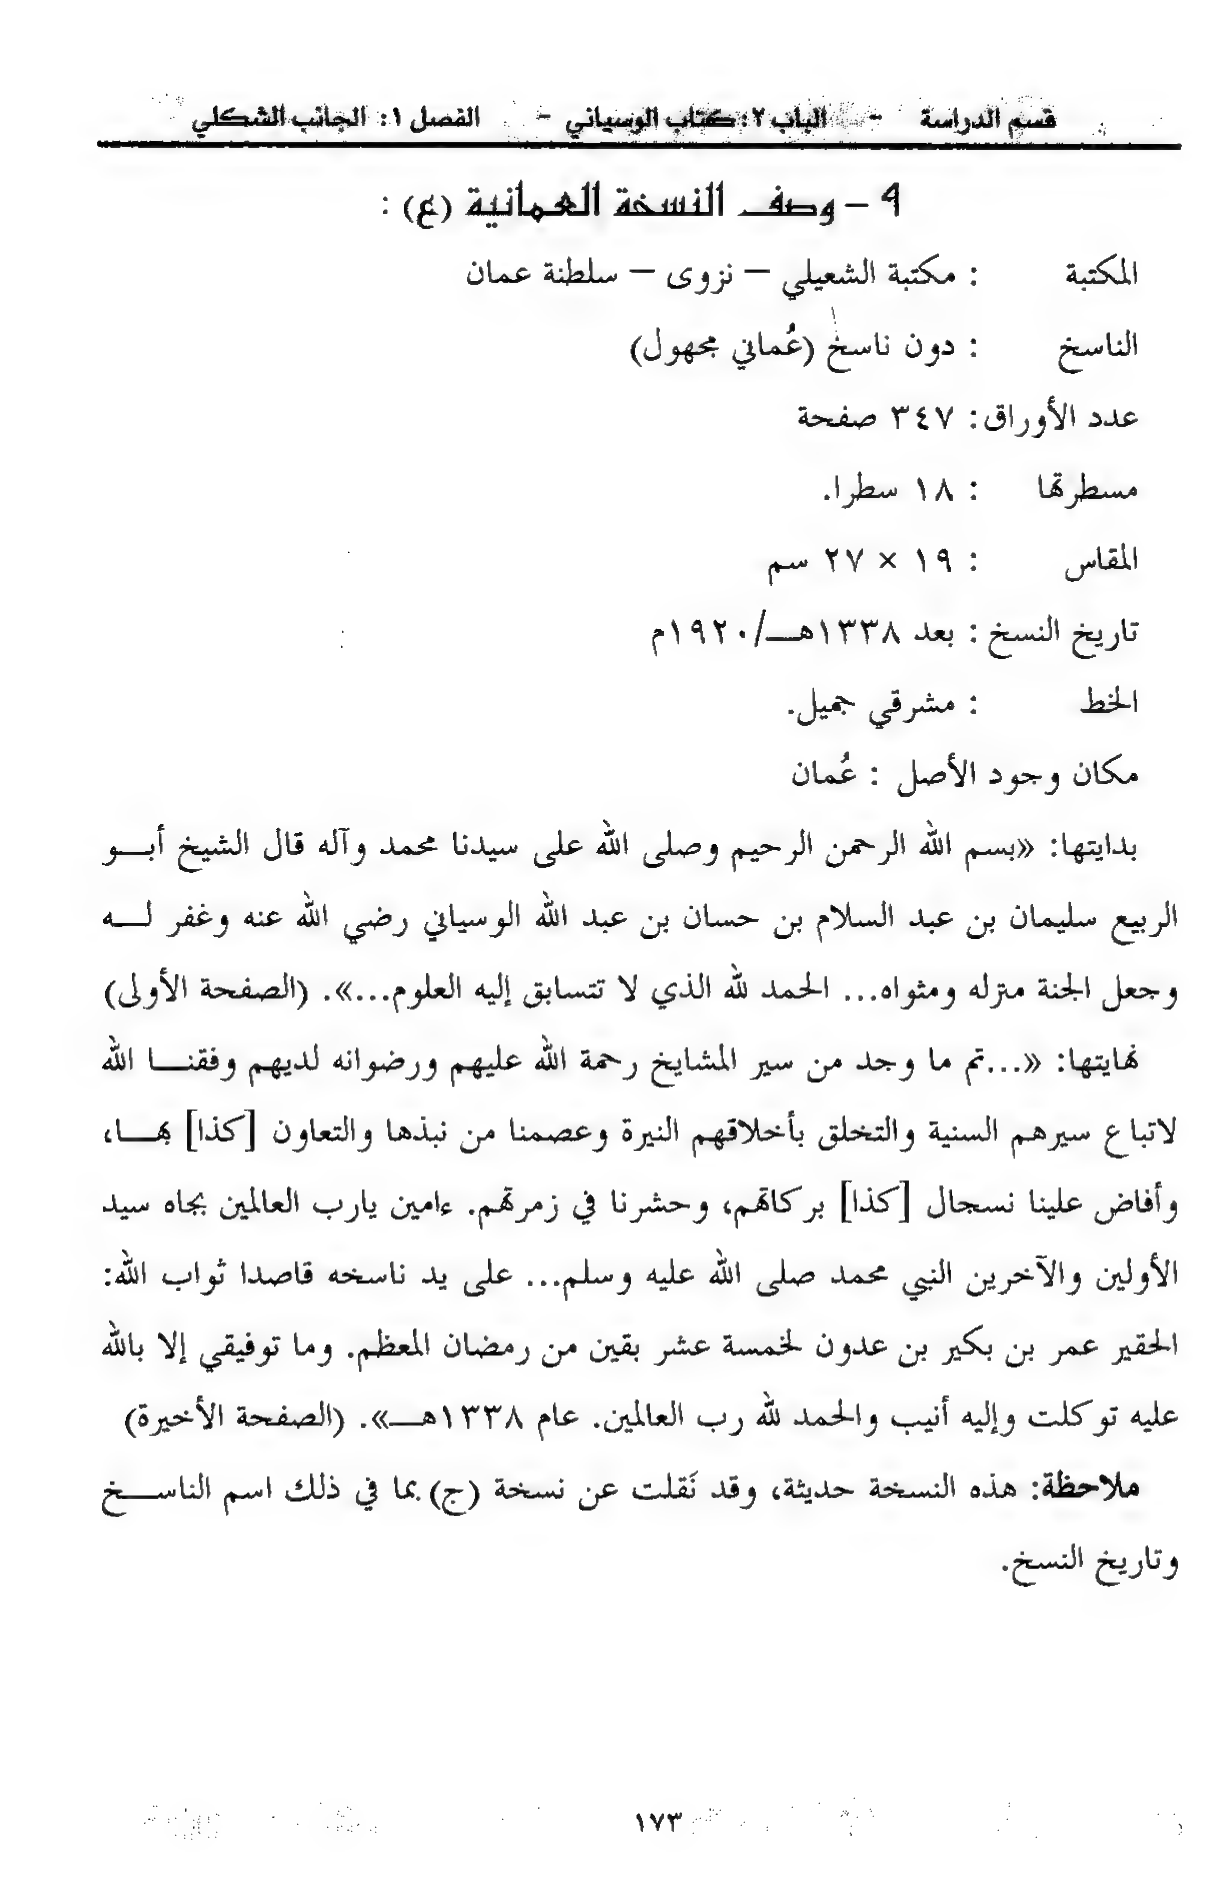 قسم الدراسة - الباب ٢: كتاب الوسياني - الفصل ١: الجانب الشكلي
٩ – وصف النسخة العمانية (ع) :
المكتبة : مكتبة الشعيلي – نزوى – سلطنة عمان
الناسخ : دون ناسخ (عُماني مجهول)
عدد الأوراق: ٣٤٧ صفحة
مسطرتها : ١٨ سطرا.
المقاس : ١٩ × ٢٧ سم
تاريخ النسخ : بعد ١٣٣٨هـ/١٩٢٠م
الخط : مشرقي جميل.
مكان وجود الأصل : عُمان
بدايتها: «بسم الله الرحمن الرحيم وصلى الله على سيدنا محمد وآله قال الشيخ أبو
الربيع سليمان بن عبد السلام بن حسان بن عبد الله الوسياني رضي الله عنه وغفر له
وجعل الجنة منزله ومثواه... الحمد لله الذي لا تتسابق إليه العلوم...». (الصفحة الأولى)
نهايتها: «...تم ما وجد من سير المشايخ رحمة الله عليهم ورضوانه لديهم وفقنا الله
لاتباع سيرهم السنية والتخلق بأخلاقهم النيرة وعصمنا من نبذها والتعاون [كذا] بها،
وأفاض علينا نسجال [كذا] بركاتهم، وحشرنا في زمرتهم. ءامين يارب العالمين بجاه سيد
الأولين والآخرين النبي محمد صلى الله عليه وسلم... على يد ناسخه قاصدا ثواب الله:
الحقير عمر بن بكير بن عدون لخمسة عشر بقين من رمضان المعظم. وما توفيقي إلا بالله
عليه توكلت وإليه أنيب والحمد لله رب العالمين. عام ١٣٣٨هـ». (الصفحة الأخيرة)
ملاحظة: هذه النسخة حديثة، وقد نَقلت عن نسخة (ج) بما في ذلك اسم الناسخ
وتاريخ النسخ.
١٧٣